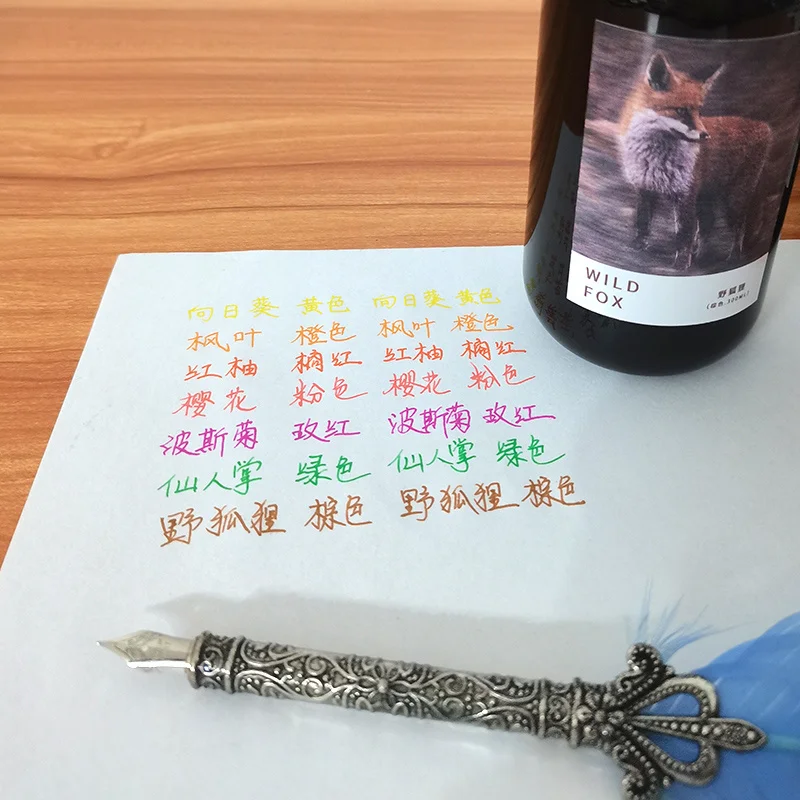 向日葵 黄色 向日葵 黄色
枫叶 橙色 枫叶 橙色
红柚 橘红 红柚 橘红
樱花 粉色 樱花 粉色
波斯菊 玫红 波斯菊 玫红
仙人掌 绿色 仙人掌 绿色
野狐狸 棕色 野狐狸 棕色
WILD
FOX
野狐狸
(棕色.300ML)